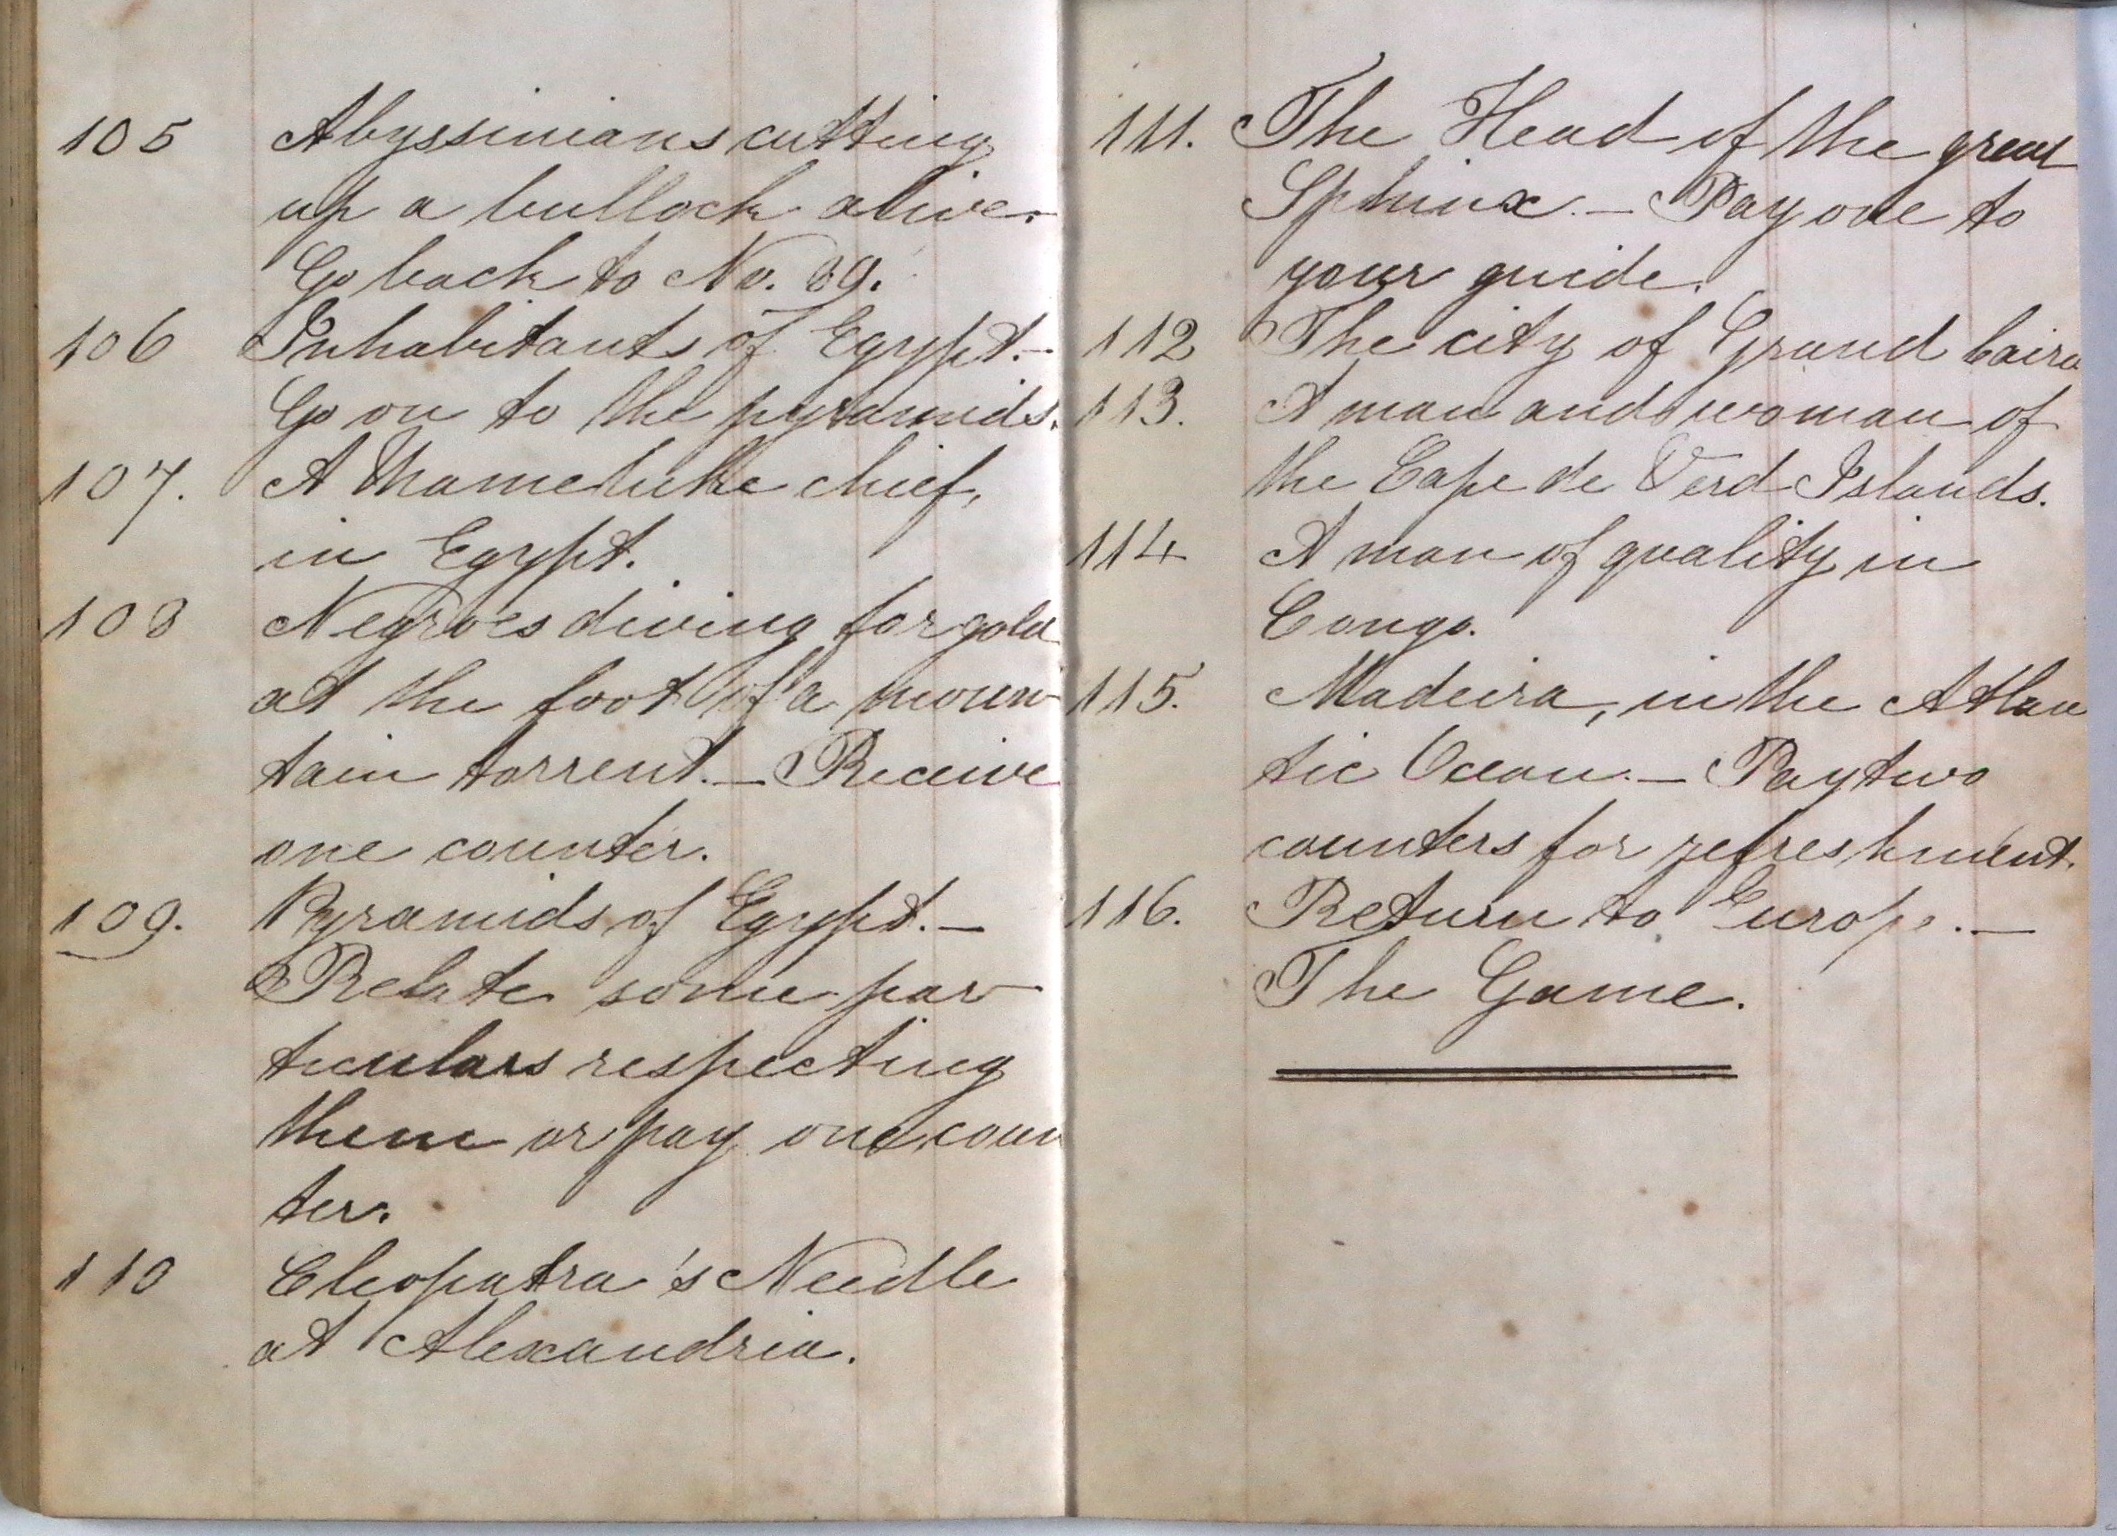 105 Abyssinians cutting
up a bullock alive.-
Go back to No. 89.
106 Inhabitants of Egypt.-
Go on to the pyramids.
107. A Mameluke chief,
in Egypt.
108 Negroes diving for gold
at the foot of a moun-
tain torrent.— Receive
one counter.
109. Pyramids of Egypt.—
Relate some par-
ticulars respecting
them or pay one coun
ter.
110 Cleopatra's Needle
at Alexandria.
111. The Head of the great
Sphinx.— Pay one to
your guide.
112 The city of Grand Cairo
113. A man and woman of
the Cape de Verd Islands.
114 A man of quality in
Congo.
115. Madeira, in the Atlan
tic Ocean.— Pay two
counters for refreshment.
116. Return to Europe.—
The Game.